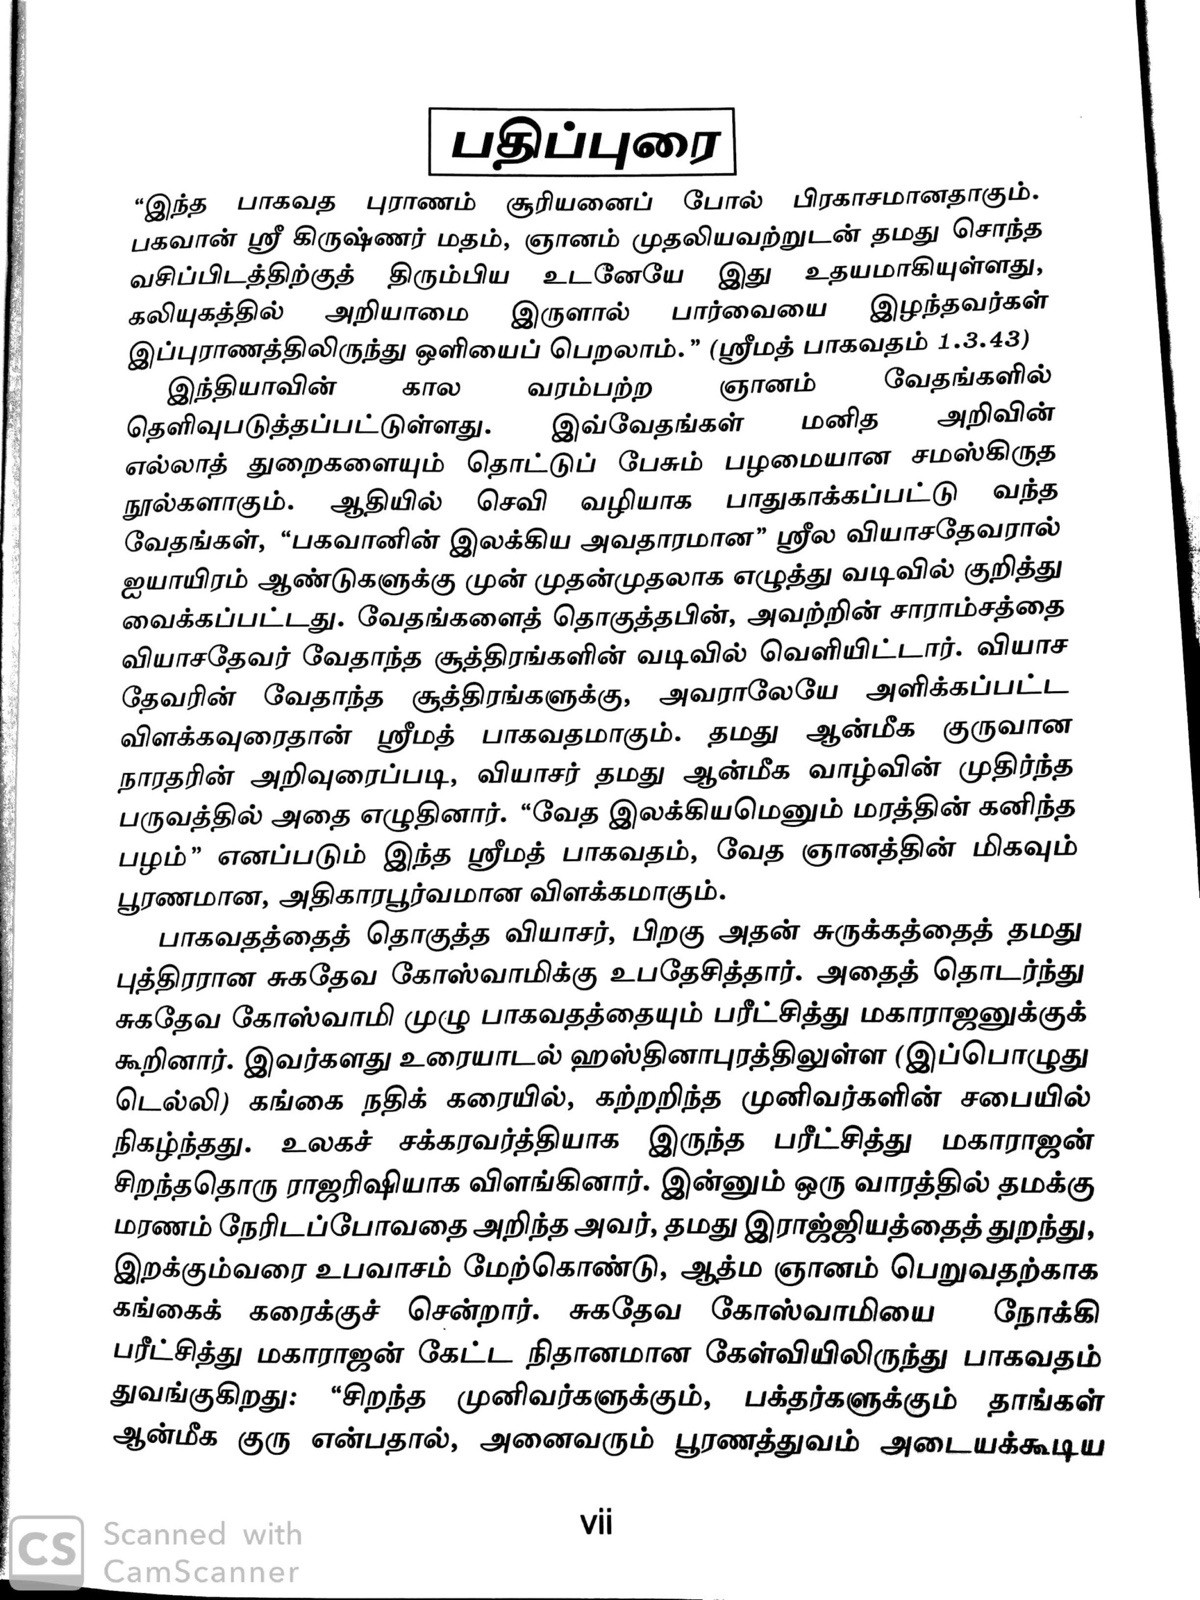 பதிப்புரை
“இந்த பாகவத புராணம் சூரியனைப் போல் பிரகாசமானதாகும்.
பகவான் ஸ்ரீ கிருஷ்ணர் மதம், ஞானம் முதலியவற்றுடன் தமது சொந்த
வசிப்பிடத்திற்குத் திரும்பிய உடனேயே இது உதயமாகியுள்ளது,
கலியுகத்தில் அறியாமை இருளால் பார்வையை இழந்தவர்கள்
இப்புராணத்திலிருந்து ஒளியைப் பெறலாம்.” (ஸ்ரீமத் பாகவதம் 1.3.43)
இந்தியாவின் கால வரம்பற்ற ஞானம் வேதங்களில்
தெளிவுபடுத்தப்பட்டுள்ளது. இவ்வேதங்கள் மனித அறிவின்
எல்லாத் துறைகளையும் தொட்டுப் பேசும் பழமையான சமஸ்கிருத
நூல்களாகும். ஆதியில் செவி வழியாக பாதுகாக்கப்பட்டு வந்த
வேதங்கள், “பகவானின் இலக்கிய அவதாரமான” ஸ்ரீல வியாசதேவரால்
ஐயாயிரம் ஆண்டுகளுக்கு முன் முதன்முதலாக எழுத்து வடிவில் குறித்து
வைக்கப்பட்டது. வேதங்களைத் தொகுத்தபின், அவற்றின் சாராம்சத்தை
வியாசதேவர் வேதாந்த சூத்திரங்களின் வடிவில் வெளியிட்டார். வியாச
தேவரின் வேதாந்த சூத்திரங்களுக்கு, அவராலேயே அளிக்கப்பட்ட
விளக்கவுரைதான் ஸ்ரீமத் பாகவதமாகும். தமது ஆன்மீக குருவான
நாரதரின் அறிவுரைப்படி, வியாசர் தமது ஆன்மீக வாழ்வின் முதிர்ந்த
பருவத்தில் அதை எழுதினார். “வேத இலக்கியமெனும் மரத்தின் கனிந்த
பழம்” எனப்படும் இந்த ஸ்ரீமத் பாகவதம், வேத ஞானத்தின் மிகவும்
பூரணமான, அதிகாரபூர்வமான விளக்கமாகும்.
பாகவதத்தைத் தொகுத்த வியாசர், பிறகு அதன் சுருக்கத்தைத் தமது
புத்திரரான சுகதேவ கோஸ்வாமிக்கு உபதேசித்தார். அதைத் தொடர்ந்து
சுகதேவ கோஸ்வாமி முழு பாகவதத்தையும் பரீட்சித்து மகாராஜனுக்குக்
கூறினார். இவர்களது உரையாடல் ஹஸ்தினாபுரத்திலுள்ள (இப்பொழுது
டெல்லி) கங்கை நதிக் கரையில், கற்றறிந்த முனிவர்களின் சபையில்
நிகழ்ந்தது. உலகச் சக்கரவர்த்தியாக இருந்த பரீட்சித்து மகாராஜன்
சிறந்ததொரு ராஜரிஷியாக விளங்கினார். இன்னும் ஒரு வாரத்தில் தமக்கு
மரணம் நேரிடப்போவதை அறிந்த அவர், தமது இராஜ்ஜியத்தைத் துறந்து,
இறக்கும்வரை உபவாசம் மேற்கொண்டு, ஆத்ம ஞானம் பெறுவதற்காக
கங்கைக் கரைக்குச் சென்றார். சுகதேவ கோஸ்வாமியை நோக்கி
பரீட்சித்து மகாராஜன் கேட்ட நிதானமான கேள்வியிலிருந்து பாகவதம்
துவங்குகிறது: “சிறந்த முனிவர்களுக்கும், பக்தர்களுக்கும் தாங்கள்
ஆன்மீக குரு என்பதால், அனைவரும் பூரணத்துவம் அடையக்கூடிய
vii
CS Scanned with
CamScanner